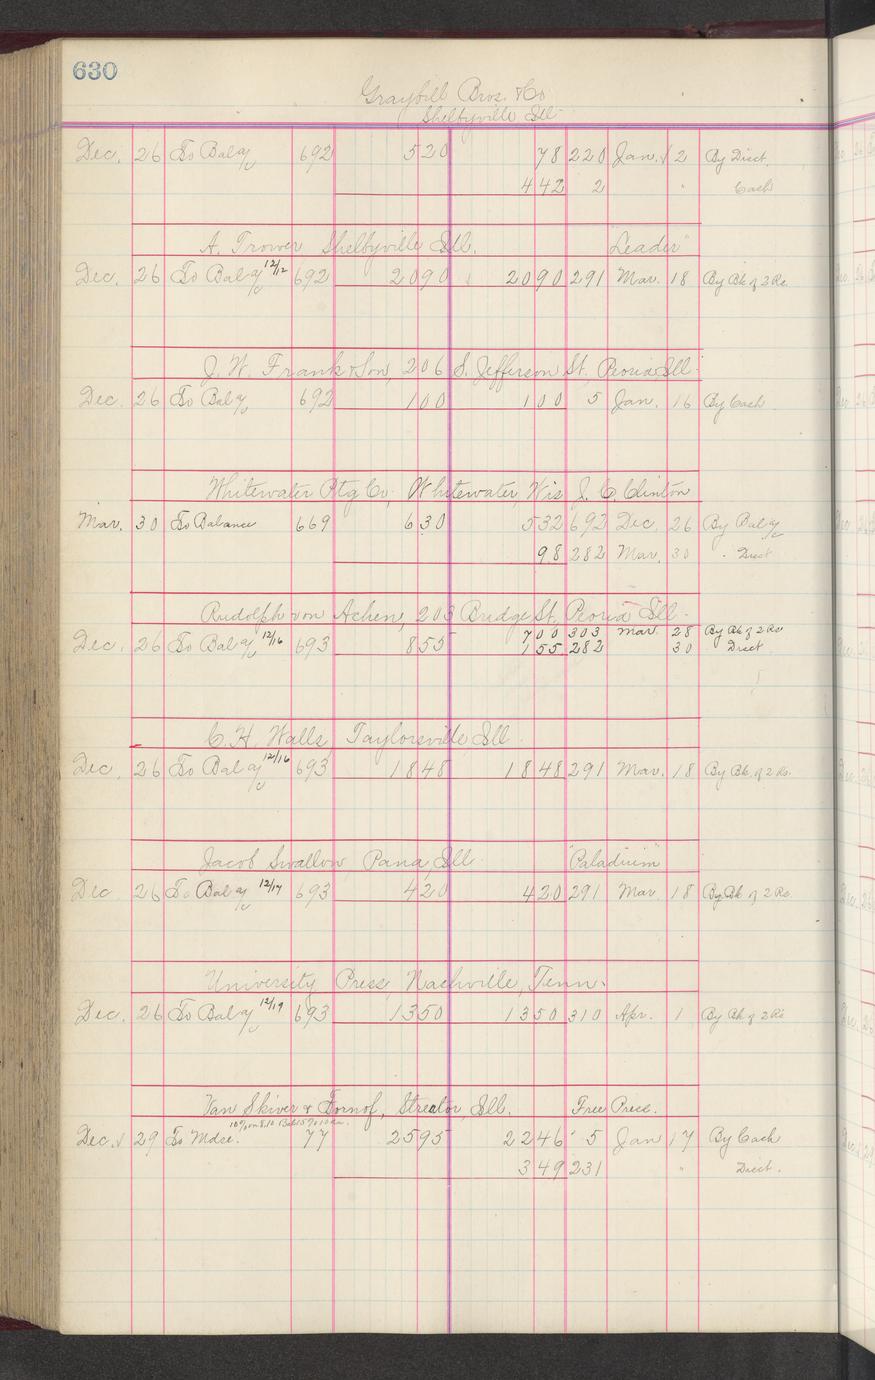 630
Graybill Bros. & Co
Shelbyville Ill
Dec. 26 To Bal a/c 692 520 78 220 Jan. 2 By Disct.
442 2 " Cash
A. Trower Shelbyville Ill. "Leader"
Dec. 26 To Bal a/c 12/12 692 2090 2090 291 Mar. 18 By Bk of 2 Rs.
J. W. Frank & Son, 206 S. Jefferson St. Peoria Ill.
Dec. 26 To Bal a/c 692 100 100 5 Jan. 16 By Cash
Whitewater Ptg Co, Whitewater, Wis J. C Clinton
Mar. 30 To Balance 669 630 532 692 Dec. 26 By Bal a/c
98 282 Mar. 30 " Disct
Rudolph von Achen, 203 Bridge St, Peoria Ill.
700 303 Mar. 28 By Bk of 2 Rs
Dec. 26 To Bal a/c 12/16 693 855 155 282 30 Disct
C. H. Walls, Taylorsville, Ill.
Dec. 26 To Bal a/c 12/16 693 1848 1848 291 Mar. 18 By Bk. of 2 Rs.
Jacob Swallow Pana, Ill. "Paladium"
Dec 26 To Bal a/c 12/17 693 420 420 291 Mar. 18 By Bk of 2 Rs.
University Press, Nachville, Tenn.
Dec. 26 To Bal a/c 12/19 693 1350 1350 310 Apr. 1 By Bk of 2 Rs
Van Skiver & Fornof, Streator, Ill. Free Press.
Dec. 29 To Mdse. 77 2595 2246 5 Jan 17 By Cash
349 231 " Disct.